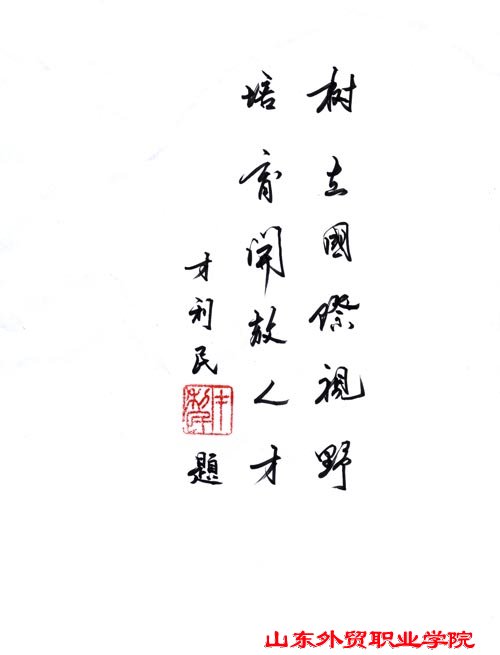 树立國際視野
培育開放人才
才利民
題
山东外贸职业学院